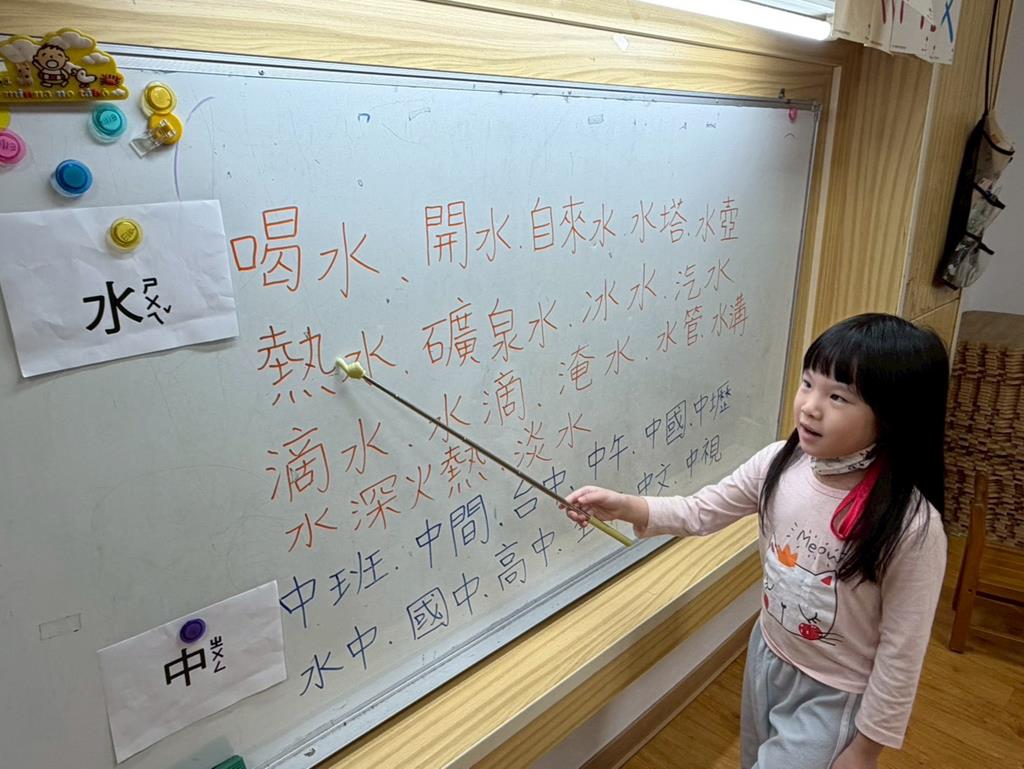 水 ㄕㄨㄟˇ
喝水、開水、自來水、水塔、水壺
熱水、礦泉水、冰水、汽水
滴水、水滴、淹水、水管、水溝
水深火熱、淡水
中 ㄓㄨㄥ
中班、中間、台中、中午、中國、中壢
水中、國中、高中、中文、中視
Meow